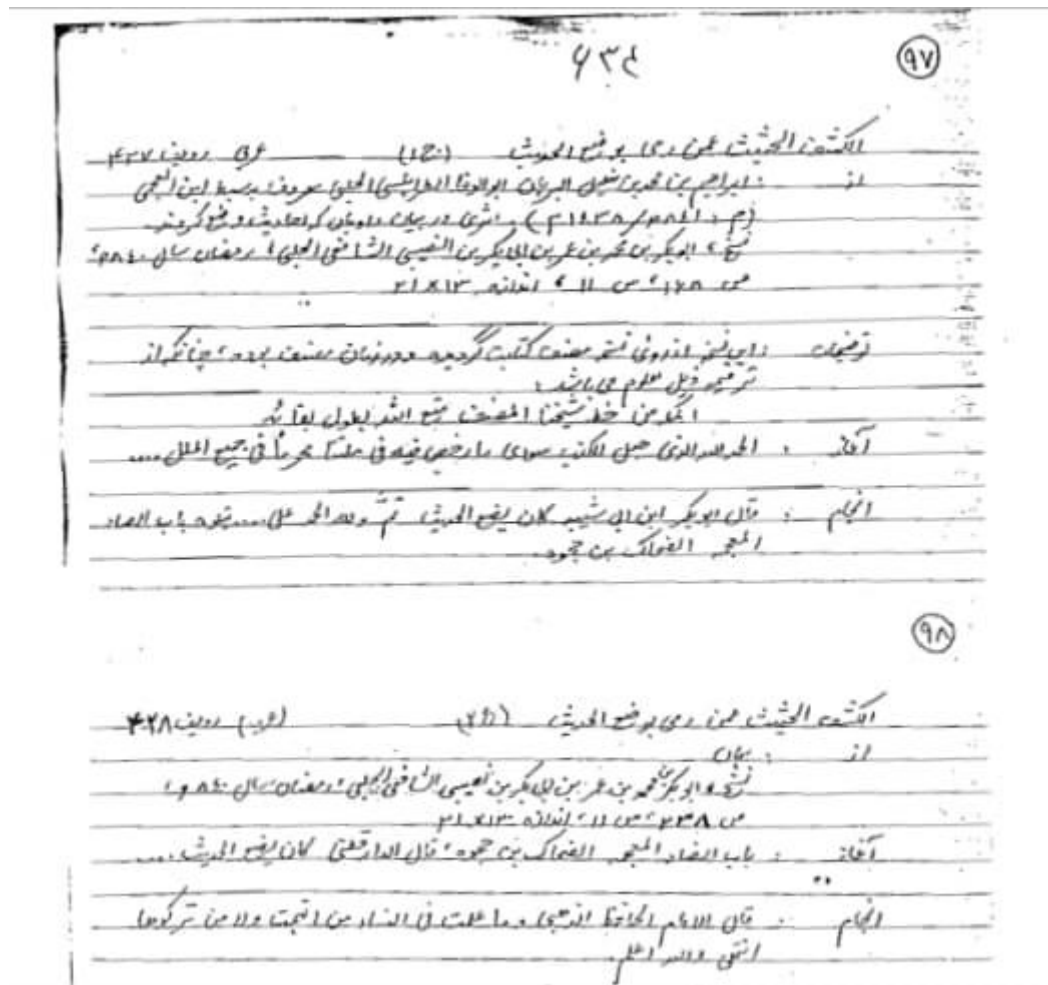 ۹۷
الکشف الحثیث عمن رمی بوضع الحدیث (ج۱) عربی ردیف ۴۲۷
از : ابراهیم بن محمد بن خلیل البرهان ابوالوفا الطرابلسی الحلبی معروف بسبط ابن العجمی
(م : ۸۴۱ھ/۱۴۳۸م) . اثری در بیان راویان که احادیث وضع کردند.
نسخ، ابوبکر بن محمد بن عمر بن ابی بکر بن النصیبی الشافعی الحلبی، رمضان سال ۸۴۰ھ،
ص ۱۶۸، س ۱۱، اندازه ۱۳×۲۱
توضیحات : این نسخه از روی نسخه مصنف کتابت گردیده و در زمان مصنف بوده، چنانکه از
ترقیمه ذیل معلوم می باشد :
من خط شیخنا المصنف متع الله بطول بقائه
آغاز : الحمد لله الذی جعل الکذب سوی ما رخص فیه فی ملتنا محرماً فی جمیع الملل ....
انجام : قال ابوبکر ابن ابی شیبه کان یضع الحدیث تمّ ولله الحمد علی .... یتلوه باب الضاد
المعجمه الضحاک بن حجوه.
۹۸
الکشف الحثیث عمن رمی بوضع الحدیث (ج۲) (عربی) ردیف ۴۲۸
از : همان
نسخ، ابوبکر بن محمد بن عمر بن ابی بکر بن نصیبی الشافعی الحلبی، رمضان سال ۸۴۰ھ،
ص ۲۳۸، س ۱۱، اندازه ۱۳×۲۱
آغاز : باب الضاد المعجمه الضحاک بن حجوه، قال الدارقطنی کان یضع الحدیث ....
انجام : قال الامام الحافظ الذهبی و ما علمت فی النساء من اتهمت ولا من ترکوها
انتهی والله اعلم.